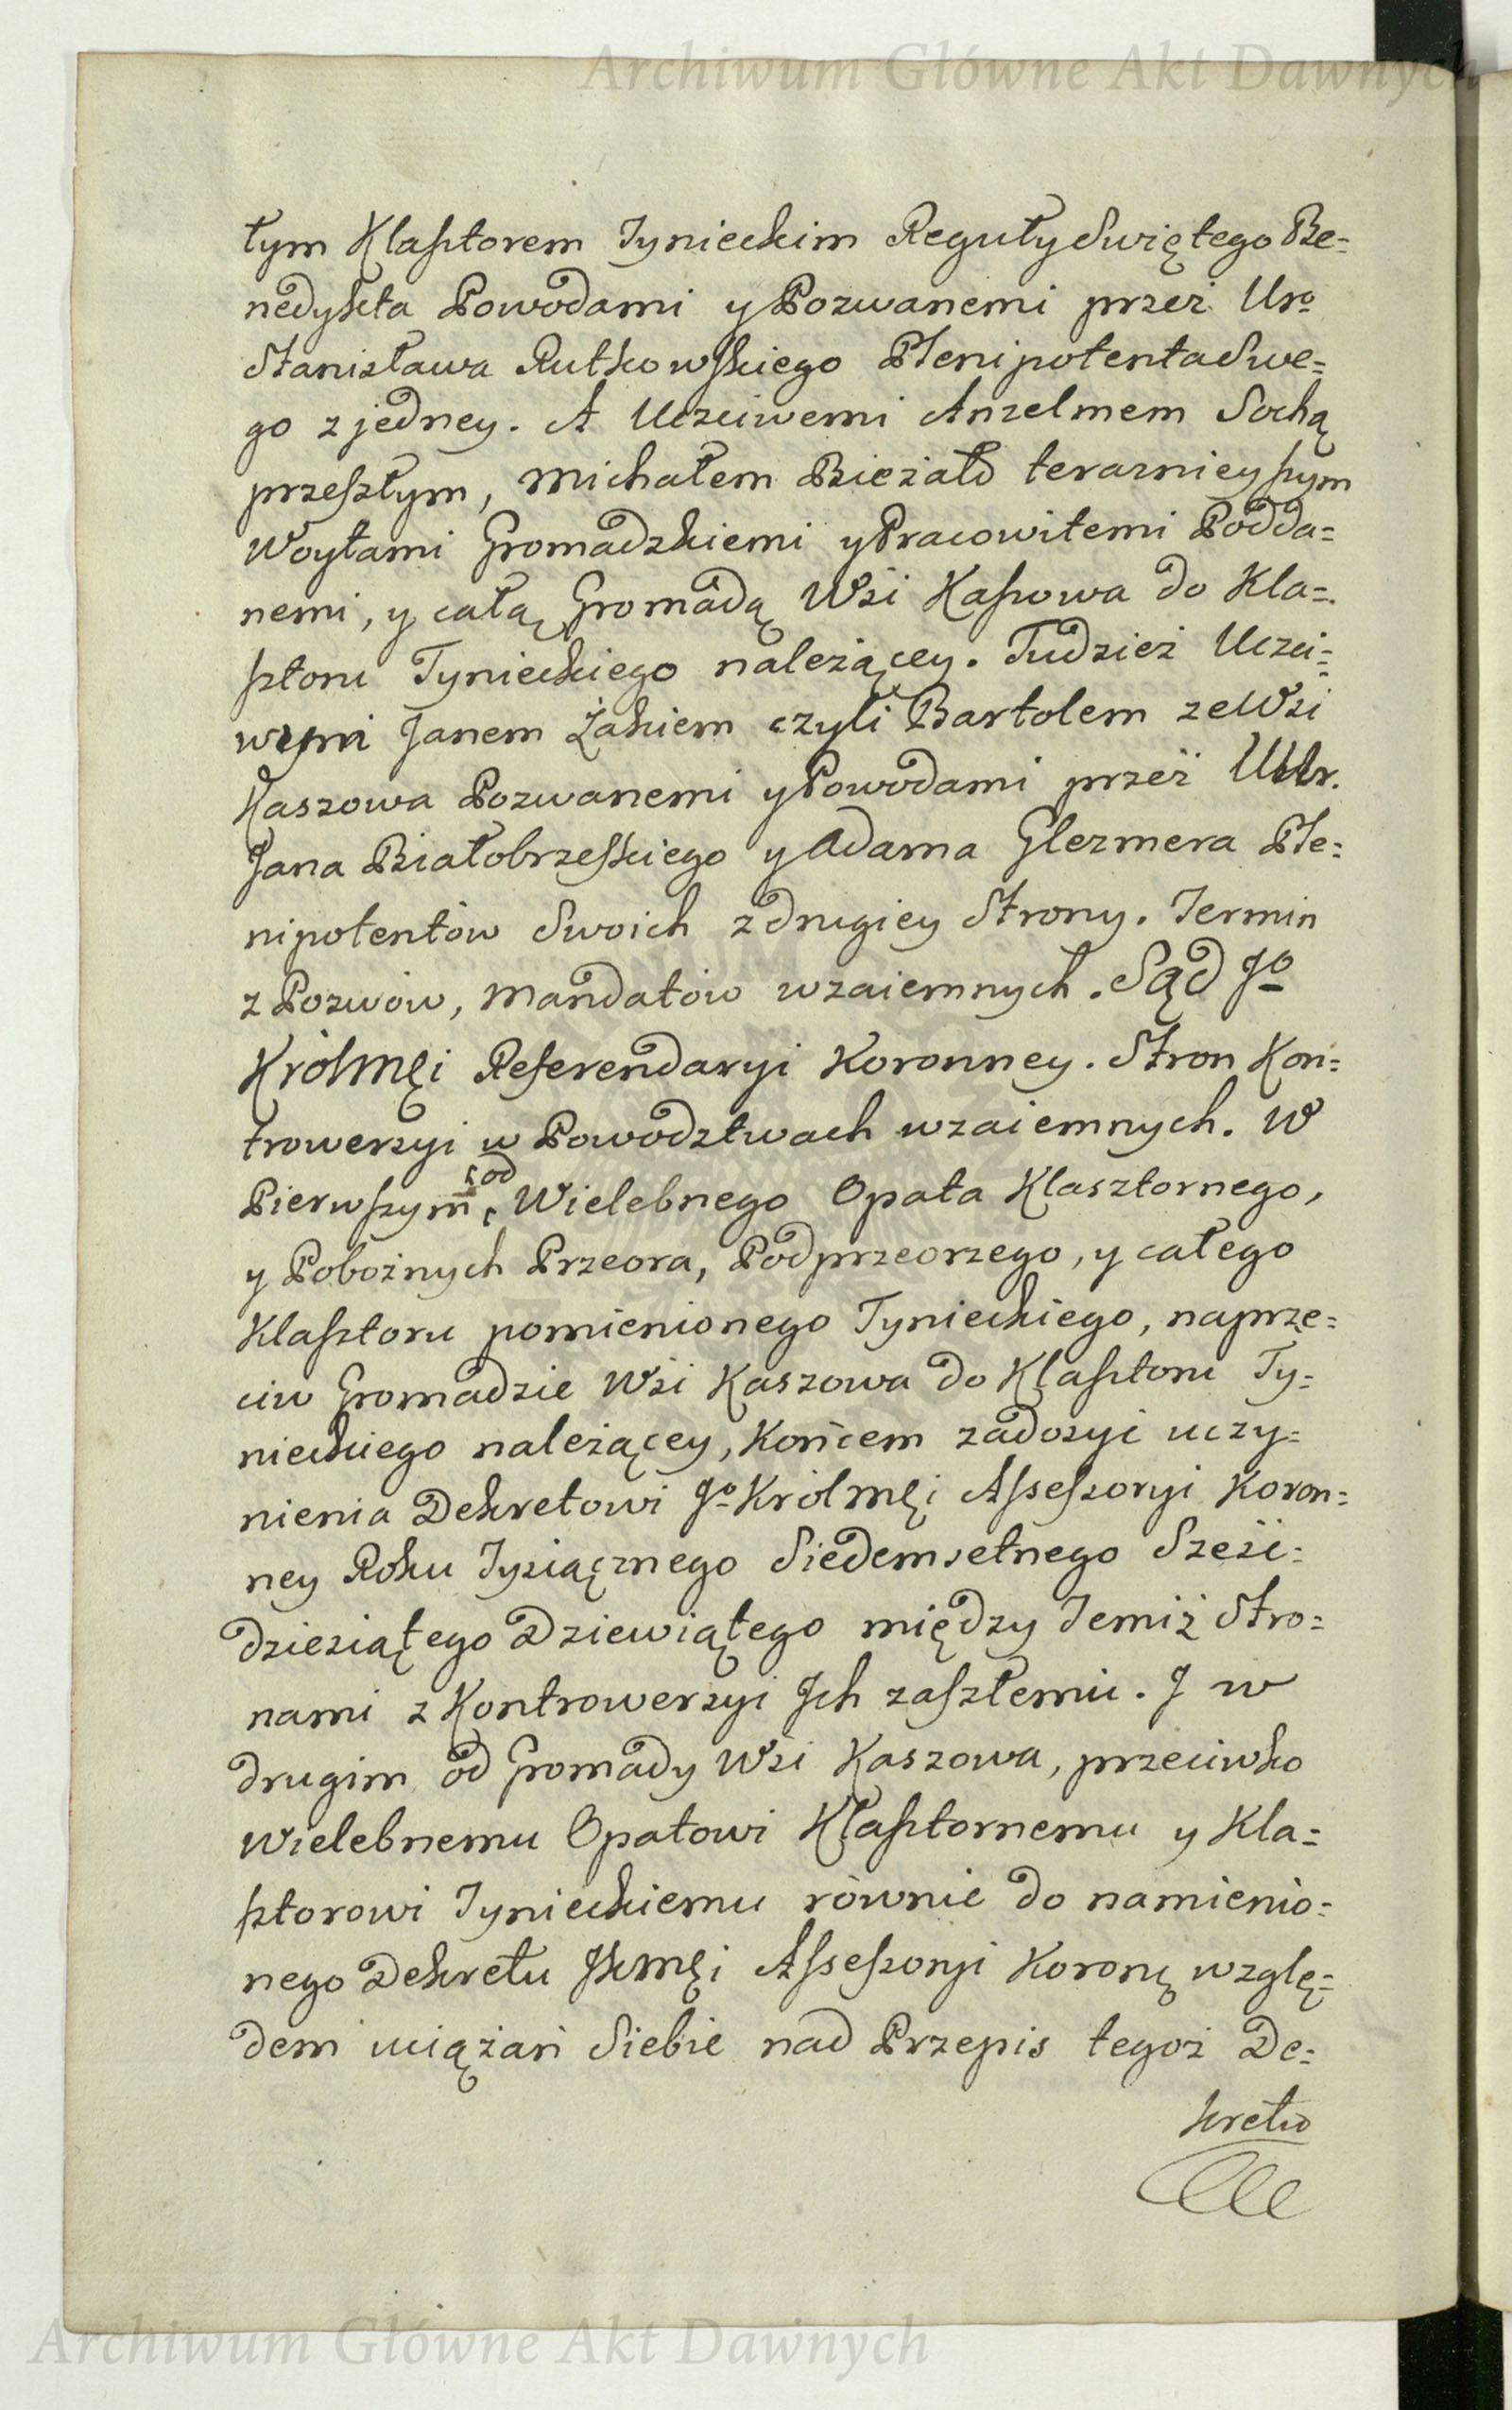 Archiwum Główne Akt Dawnych
łym Klasztorem Tynieckim Reguły Swiętego Be=
nedykta Powodami y Pozwanemi przez Uro
Stanisława Rutkowskiego Plenipotenta Swe=
go z jedney. A Uczciwemi Anzelmem Sochą
przeszłym, Michałem Bieżało terazniejszym
Woytami Gromadzkiemi y Pracowitemi Podda=
nemi, y całą Gromadą Wsi Kaszowa do Kla=
sztoru Tynieckiego należącey. Tudzież Uczci=
wymi Janem Żakiem czyli Bartolem ze Wsi
Kaszowa Pozwanemi y Powodami przez UUr.
Jana Białobrzeskiego y Adama Glezmera Ple=
nipotentów Swoich z drugiey Strony. Termin
z Pozwów, Mandatów wzaiemnych. Sąd Jo
KrólMći Referendaryi Koronney. Stron Kon=
trowersyi w Powodztwach wzaiemnych. W
Pierwszym od Wielebnego Opata Klasztornego,
y Pobożnych Przeora, Podprzeorzego, y całego
Klasztoru pomienionego Tynieckiego, naprze=
ciw Gromadzie Wsi Kaszowa do Klasztoru Ty=
nieckiego należącey, Końcem zadosyć uczy=
nienia Dekretowi Jo KrólMći Assessoryi Koron=
ney Roku Tysiącznego Siedemsetnego Sześć=
dziesiątego Dziewiątego między Temiż Stro=
nami z Kontrowersyi Jch zaszłemu. J w
drugim od Gromady Wsi Kaszowa, przeciwko
Wielebnemu Opatowi Klasztornemu y Kla=
sztorowi Tynieckiemu równie do namienio=
nego Dekretu JKMći Assessoryi Koronę wzglę=
dem uciążań Siebie nad Przepis tegoż De=
kretu
Archiwum Główne Akt Dawnych